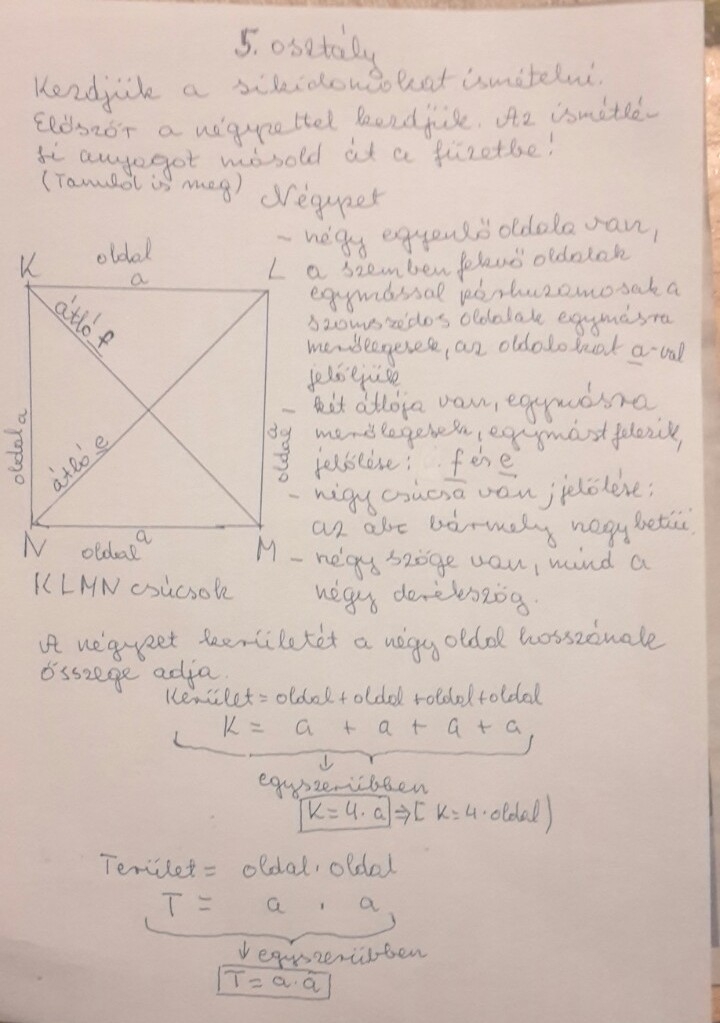 5. osztály
Kezdjük a síkidomokat ismételni.
Először a négyzettel kezdjük. Az ismétlé-
si anyagot másold át a füzetbe!
(Tanuld is meg)
Négyzet
- négy egyenlő oldala van,
a szemben fekvő oldalak
egymással párhuzamosak a
szomszédos oldalak egymásra
merőlegesek, az oldalakat a-val
jelöljük
- két átlója van, egymásra
merőlegesek, egymást felezik,
jelölése: f és e
- négy csúcsa van; jelölése:
az abc bármely nagybetűi.
- négy szöge van, mind a
négy derékszög.
K
oldal
a
L
átló f
oldal a
átló e
a
oldal
N
oldal a
M
KLMN csúcsok
A négyzet kerületét a négy oldal hosszának
összege adja.
Kerület = oldal + oldal + oldal + oldal
K = a + a + a + a
↓
egyszerűbben
K = 4 · a ⇒ [ K = 4 · oldal )
Terület = oldal · oldal
T = a · a
↓ egyszerűbben
T = a · a